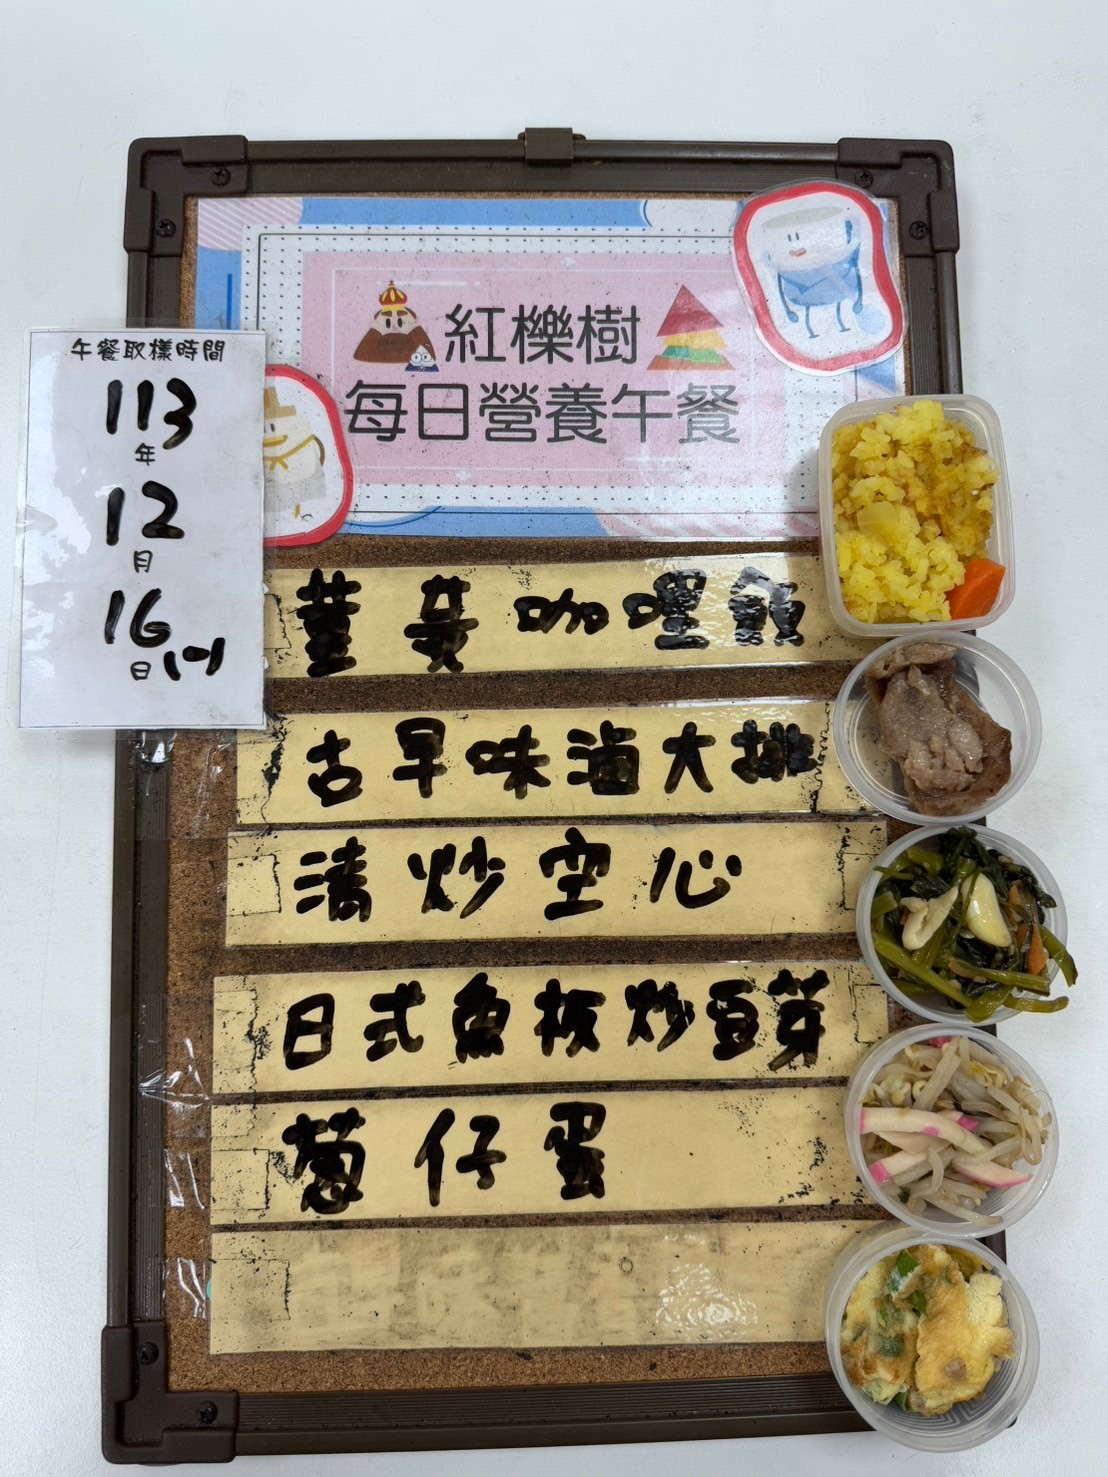 紅櫟樹
每日營養午餐
午餐取樣時間
113
年
12
月
16
日(一)
薑黃咖哩飯
古早味滷大排
清炒空心
日式魚板炒豆芽
蔥仔蛋